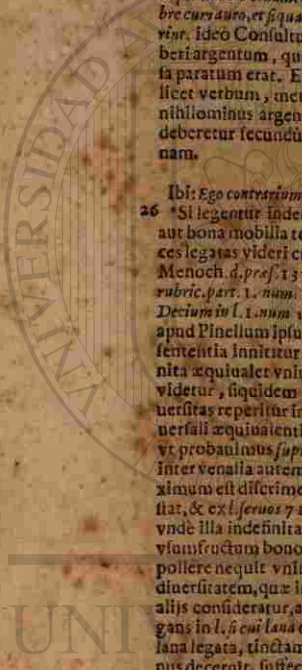 bre cursauro, et siqua
rint. Ideò Consultu
beri argentum, qu
sa paratum erat. E
licet verbum, me
nihilominus argen
deberetur secundù
nam.
Ibi: Ego contrarium
26 *Si legentur inde
aut bona mobilia te
ces legatas videri c
Menoch. d. præs. 13
rubric. part. 1. num.
Decium in l. 1. num
apud Pinellum ipsu
sententia innititur
nita æquiualet vni
videtur, siquidem
uersitas reperitur in
uersali æquiualenti
vt probauimus sup
inter venalia autem
ximum est discrime
stat, & ex l. seruos 7
vndè illa indefinita
vsumfructum bono
pollere nequit vni
diuersitatem, quæ i
alijs consideratur, a
gans in l. si cui lana
lana legata, tinctam
UNIVERSID
UNI